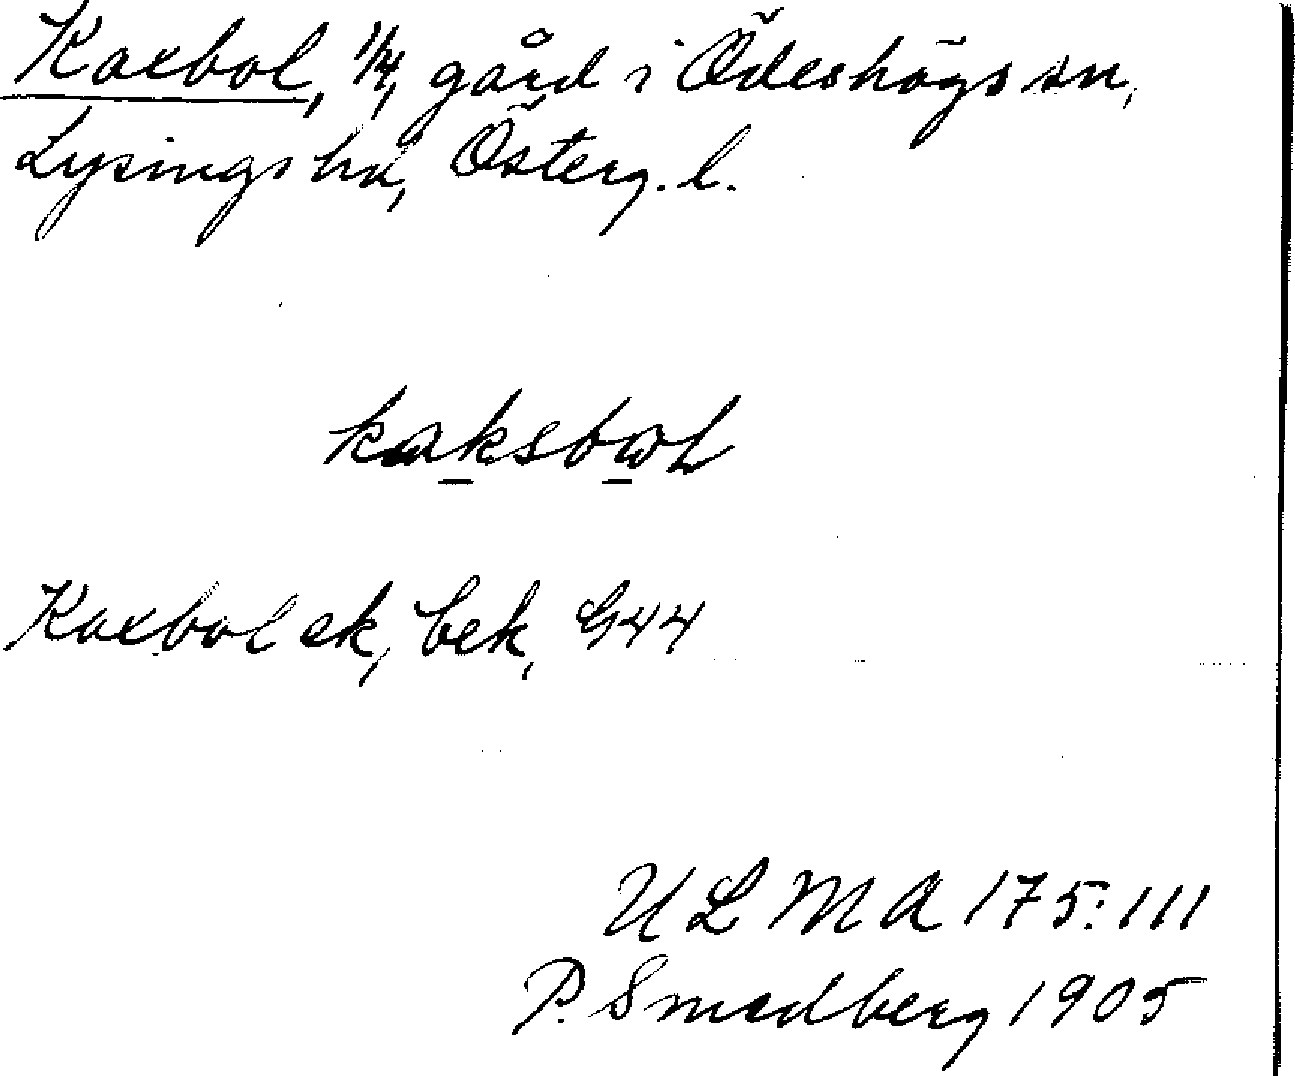 Kaxbol, 1/4, gård i Ödeshögs sn,
Lysings hd, Österg. l.
kaksbωL
Kaxbol ek, bek, G44
ULMA 175:111
P. Smedberg 1905